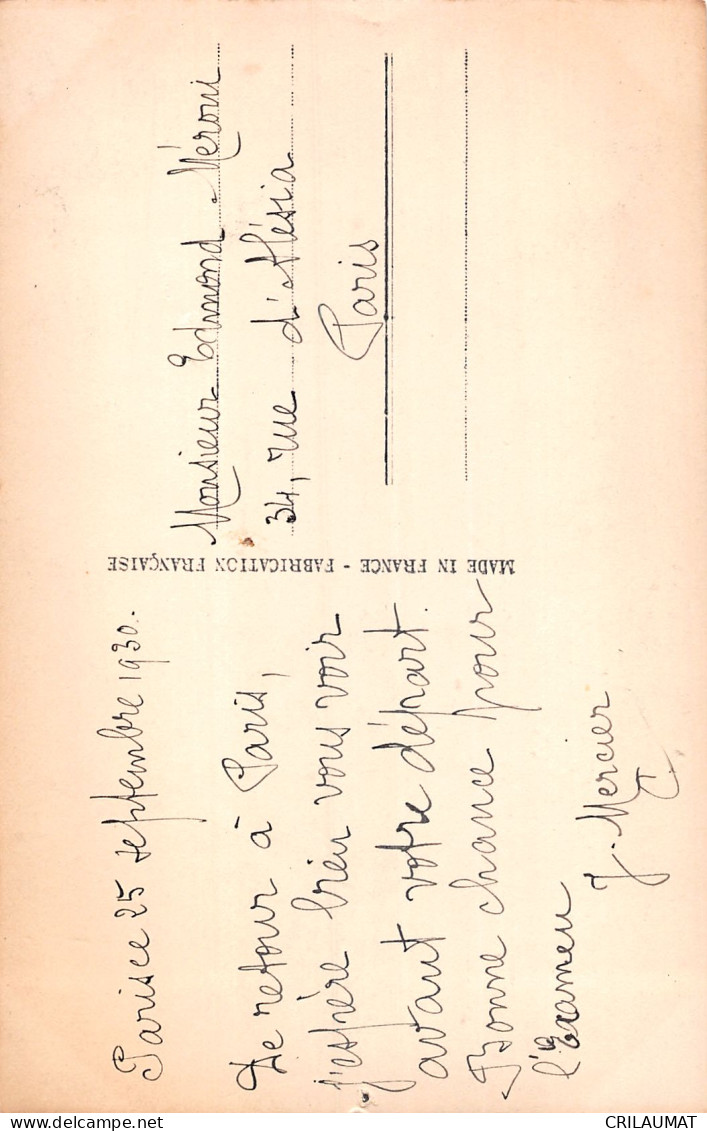 Paris ce 25 septembre 1930.-
De retour à Paris,
j'espère bien vous voir
avant votre départ.
Bonne chance pour
l'Examen
J. Mercier
MADE IN FRANCE - FABRICATION FRANÇAISE
Monsieur Edmond Méroni
34, rue d'Alésia
Paris
delcampe.net
CRILAUMAT